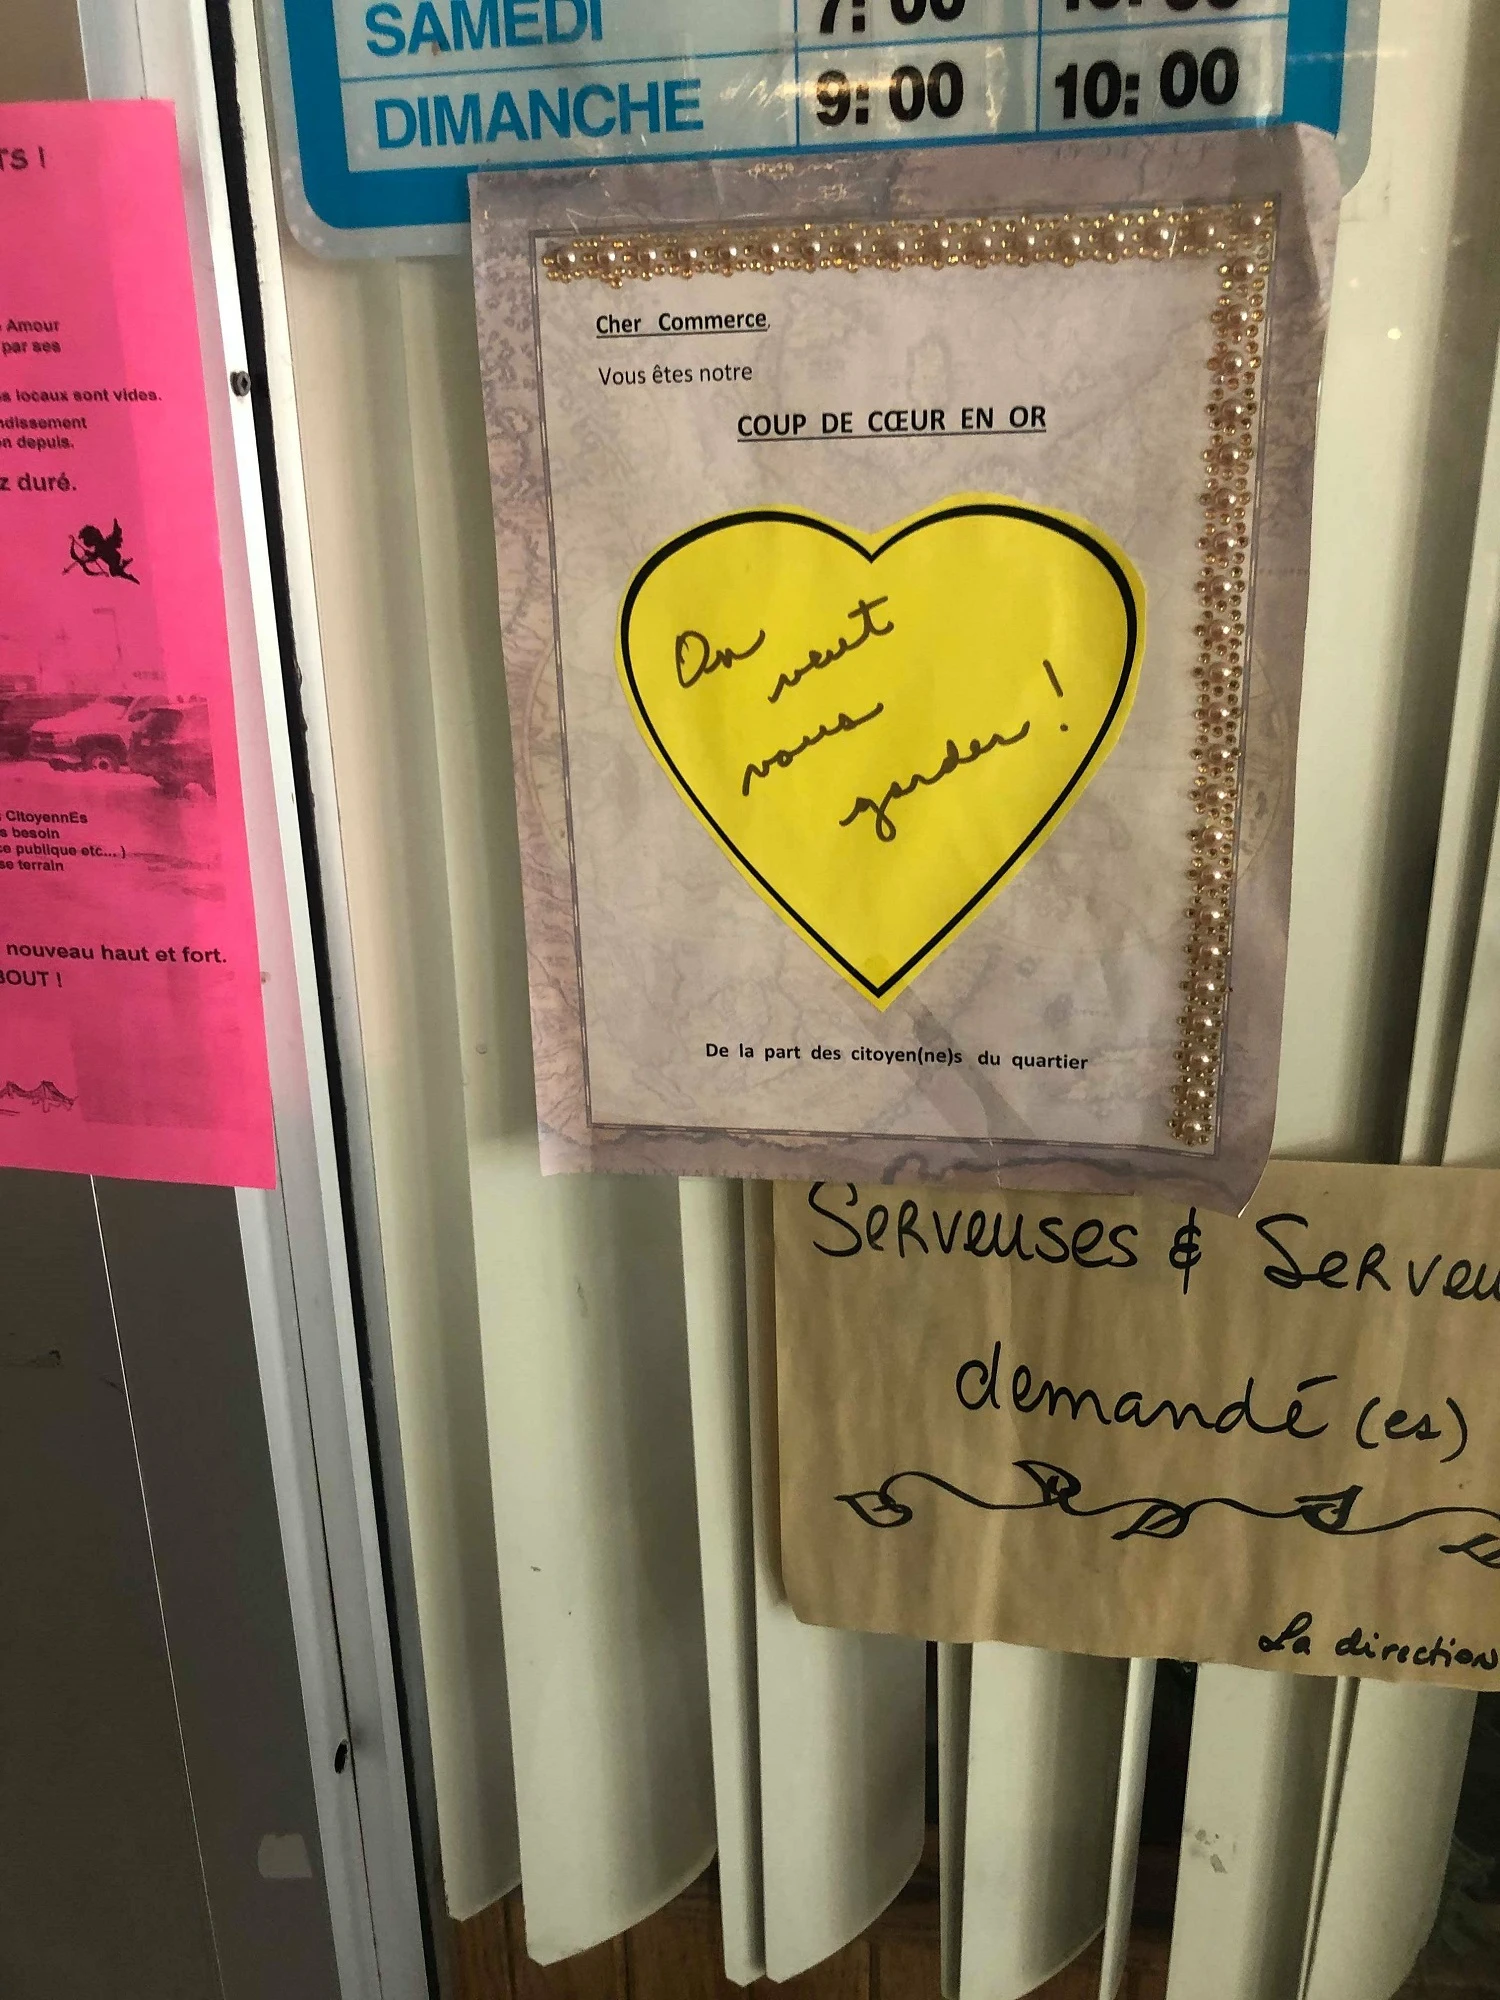 SAMEDI 7:00
DIMANCHE 9:00 10:00
TS !
Amour
par ses
locaux sont vides.
ndissement
n depuis.
z duré.
CitoyennEs
s besoin
publique etc... )
se terrain
nouveau haut et fort.
BOUT !
Cher Commerce,
Vous êtes notre
COUP DE CŒUR EN OR
On
veut
vous
garder !
De la part des citoyen(ne)s du quartier
Serveuses & Serveu
demandé (es)
La direction